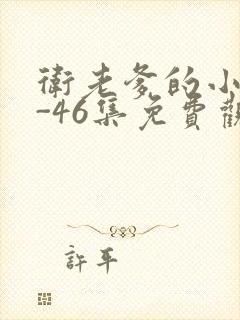 衛老爹的小
-46集免費觀
許平